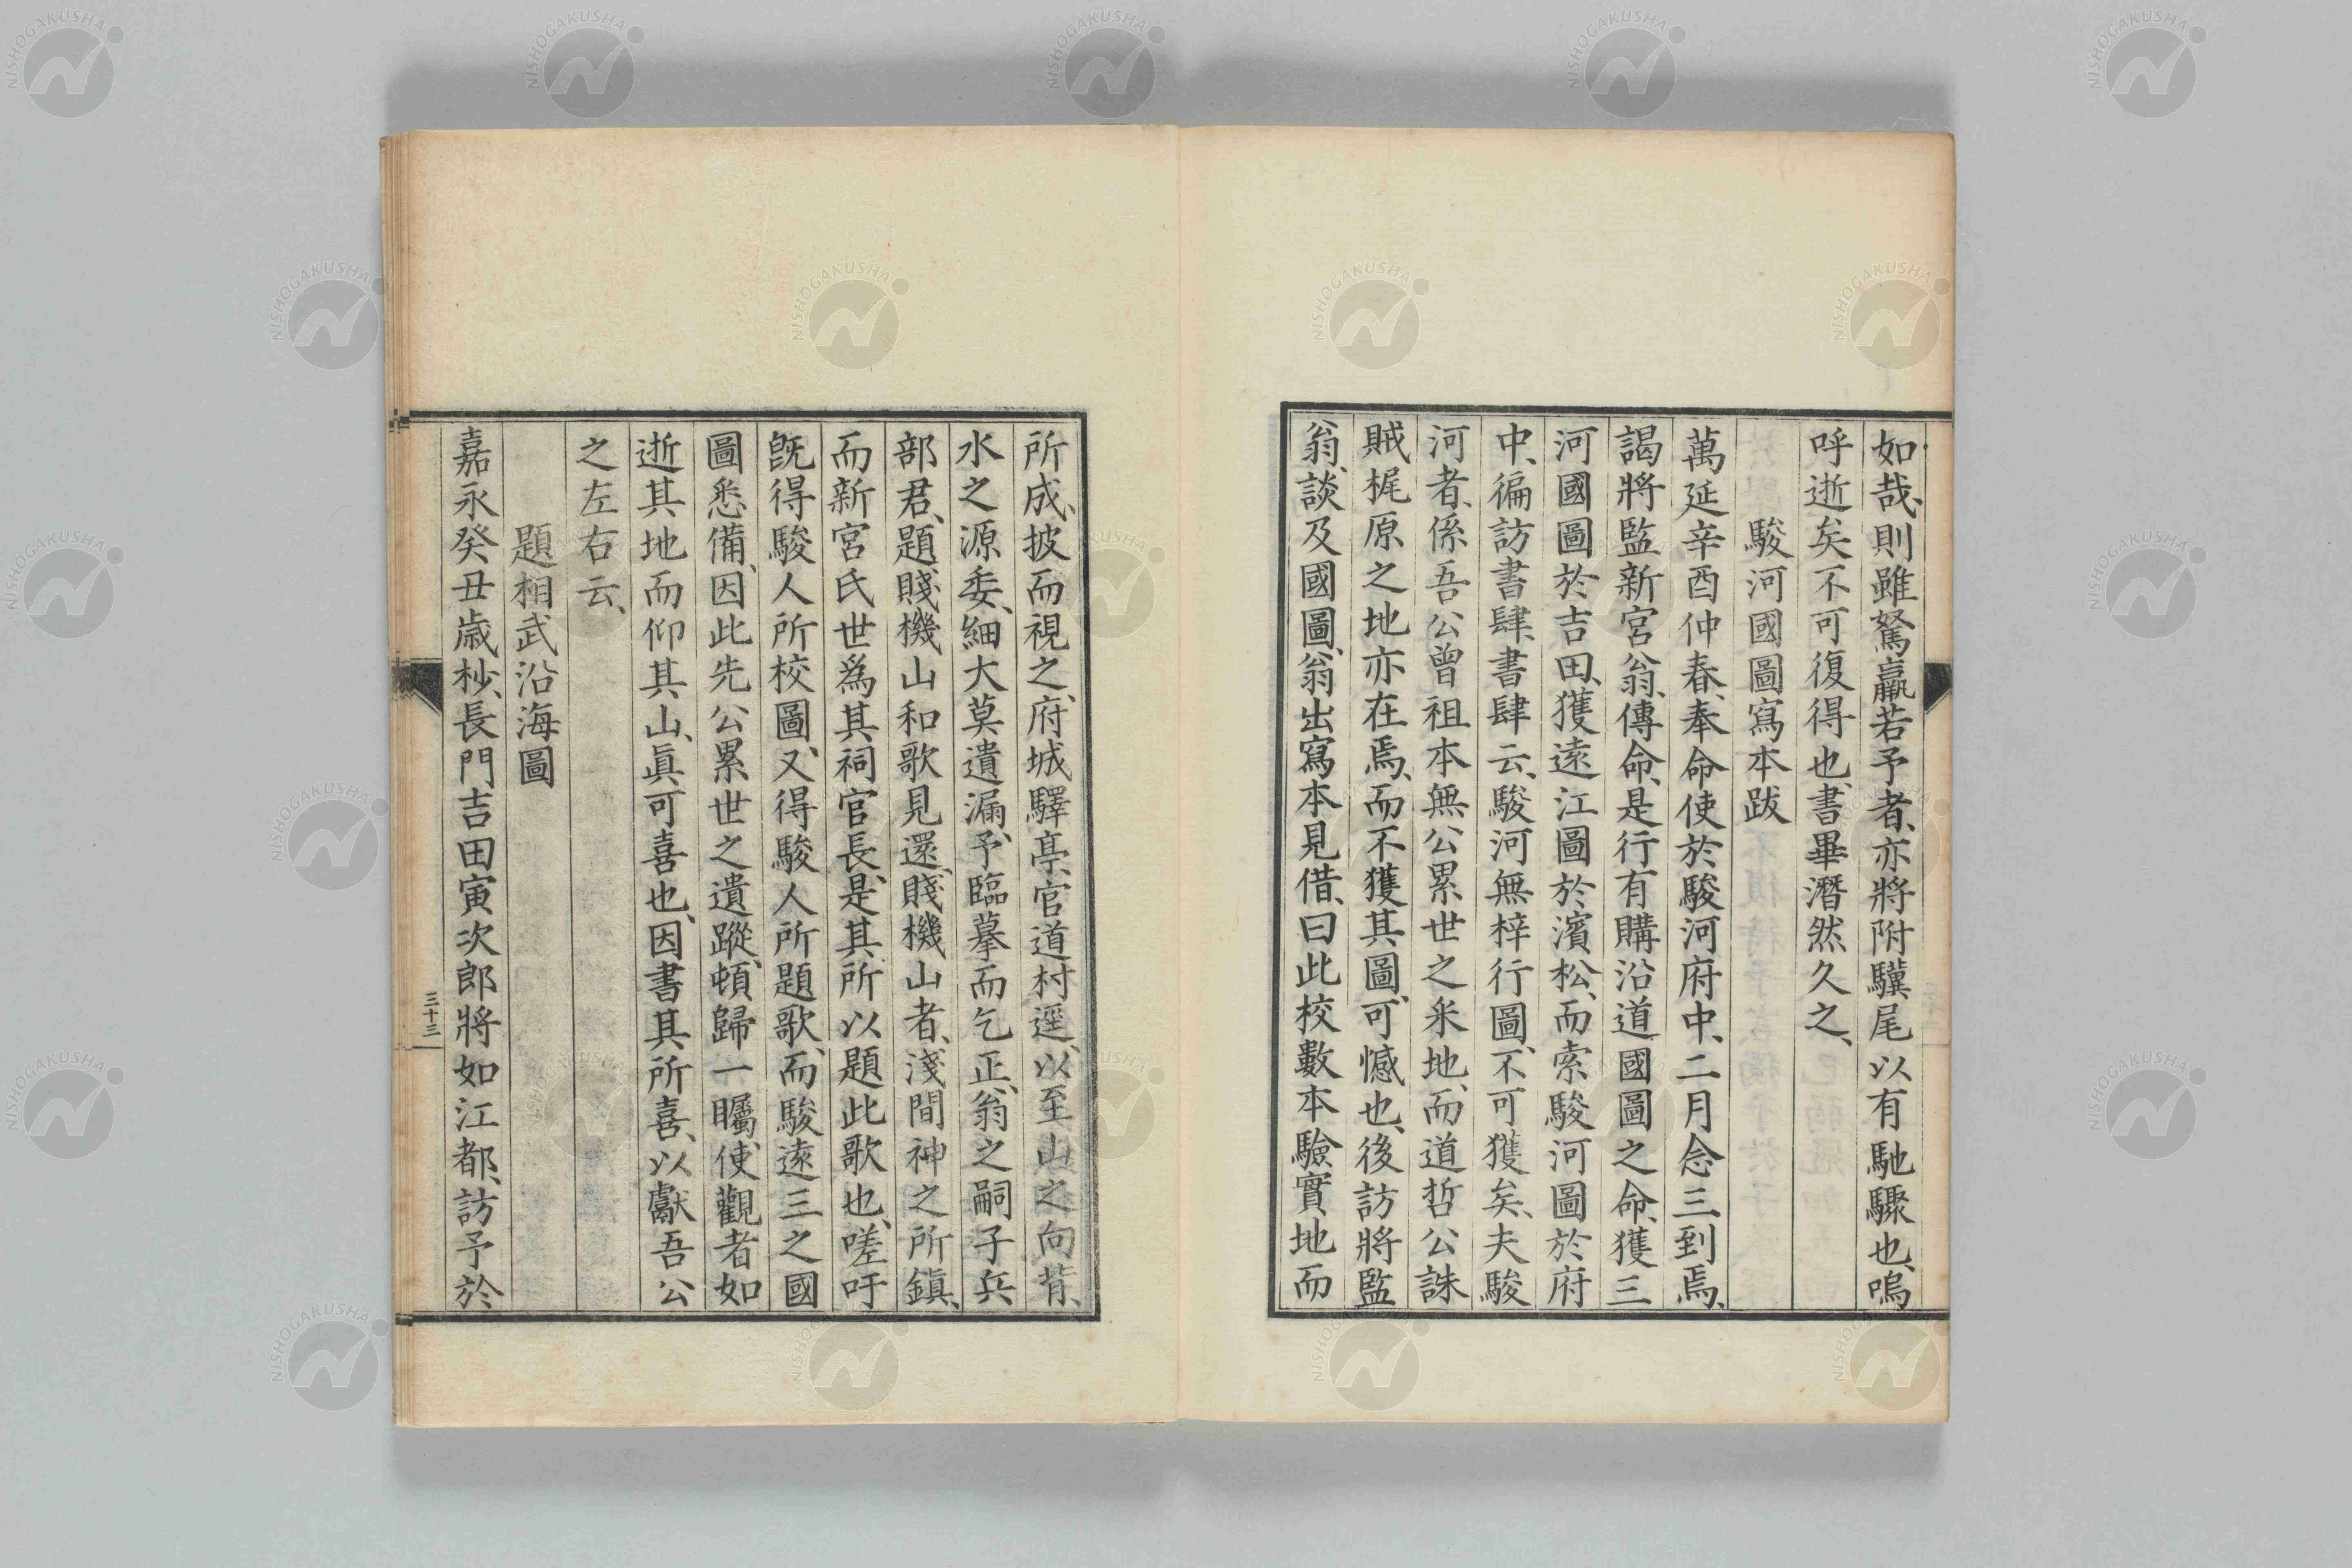 如哉、則雖駑羸若予者、亦將附驥尾以有馳驟也、嗚
呼逝矣不可復得也、書畢潛然久之、
駿河國圖寫本跋
萬延辛酉仲春、奉命使於駿河府中、二月念三到焉、
謁將監新宮翁、傳命、是行有購沿道國圖之命、獲三
河國圖於吉田、獲遠江圖於濱松、而索駿河圖於府
中、徧訪書肆、書肆云、駿河無梓行圖、不可獲矣、夫駿
河者、係吾公曾祖本無公累世之釆地、而道哲公誅
賊梶原之地亦在焉、而不獲其圖、可憾也、後訪將監
翁、談及國圖、翁出寫本見借、曰此校數本驗實地而
所成、披而視之、府城驛亭、官道村逕、以至山之向背、
水之源委、細大莫遺漏、予臨摹而乞正、翁之嗣子兵
部君、題賤機山和歌見還、賤機山者、淺間神之所鎮、
而新宮氏世爲其祠官長、是其所以題此歌也、嗟吁
既得駿人所校圖、又得駿人所題歌、而駿遠三之國
圖悉備、因此先公累世之遺蹤、頓歸一矚、使觀者如
逝其地而仰其山、眞可喜也、因書其所喜、以獻吾公
之左右云、
題相武沿海圖
嘉永癸丑歲杪、長門吉田寅次郎將如江都、訪予於
三十三
NISHOGAKUSHA